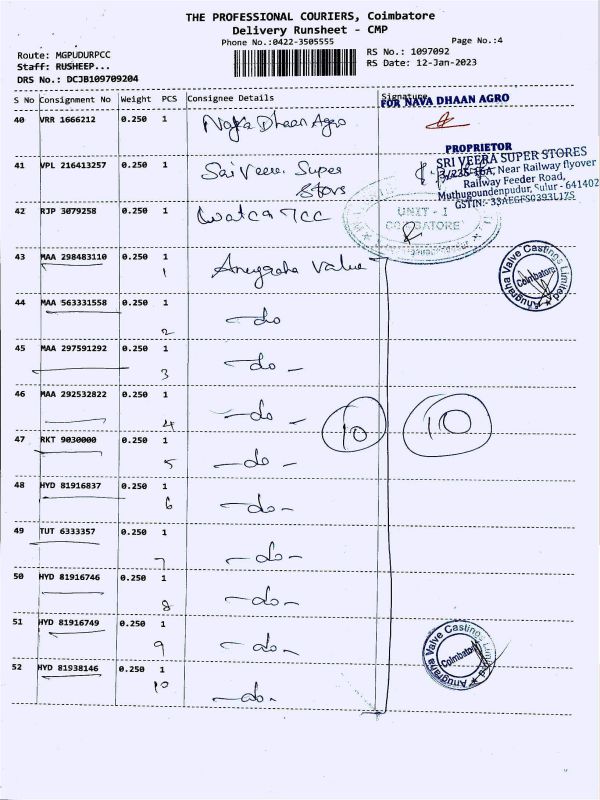 THE PROFESSIONAL COURIERS, Coimbatore
Delivery Runsheet - CMP
Phone No.:0422-3505555
Page No.:4
Route: MGPUDURPCC
Staff: RUSHEEP...
DRS No.: DCJB109709204
RS No.: 1097092
RS Date: 12-Jan-2023
S No Consignment No Weight PCS Consignee Details Signature
FOR NAVA DHAAN AGRO
40 VRR 1666212 0.250 1 Nava Dhaan Agro
PROPRIETOR
41 VPL 216413257 0.250 1 Sri Veera Super
Stors
SRI VEERA SUPER STORES
3/235-16A, Near Railway flyover
Railway Feeder Road,
Muthugoundenpudur, Sulur - 641402
GSTIN:- 33AEGFS0393L1ZS
42 RJP 3079258 0.250 1
UNIT - I
COIMBATORE
43 MAA 298483110 0.250 1 Anugraha Value
1
Anugraha Valve Castings Limited
Coimbatore
44 MAA 563331558 0.250 1 -do
2
45 MAA 297591292 0.250 1 -do-
3
46 MAA 292532822 0.250 1 -do-
4
10 10
47 RKT 9030000 0.250 1 -do-
5
48 HYD 81916837 0.250 1 -do-
6
49 TUT 6333357 0.250 1 -do-
7
50 HYD 81916746 0.250 1 -do-
8
51 HYD 81916749 0.250 1 -do-
9
Anugraha Valve Castings Limited
Coimbatore
52 HYD 81938146 0.250 1 -do-
10